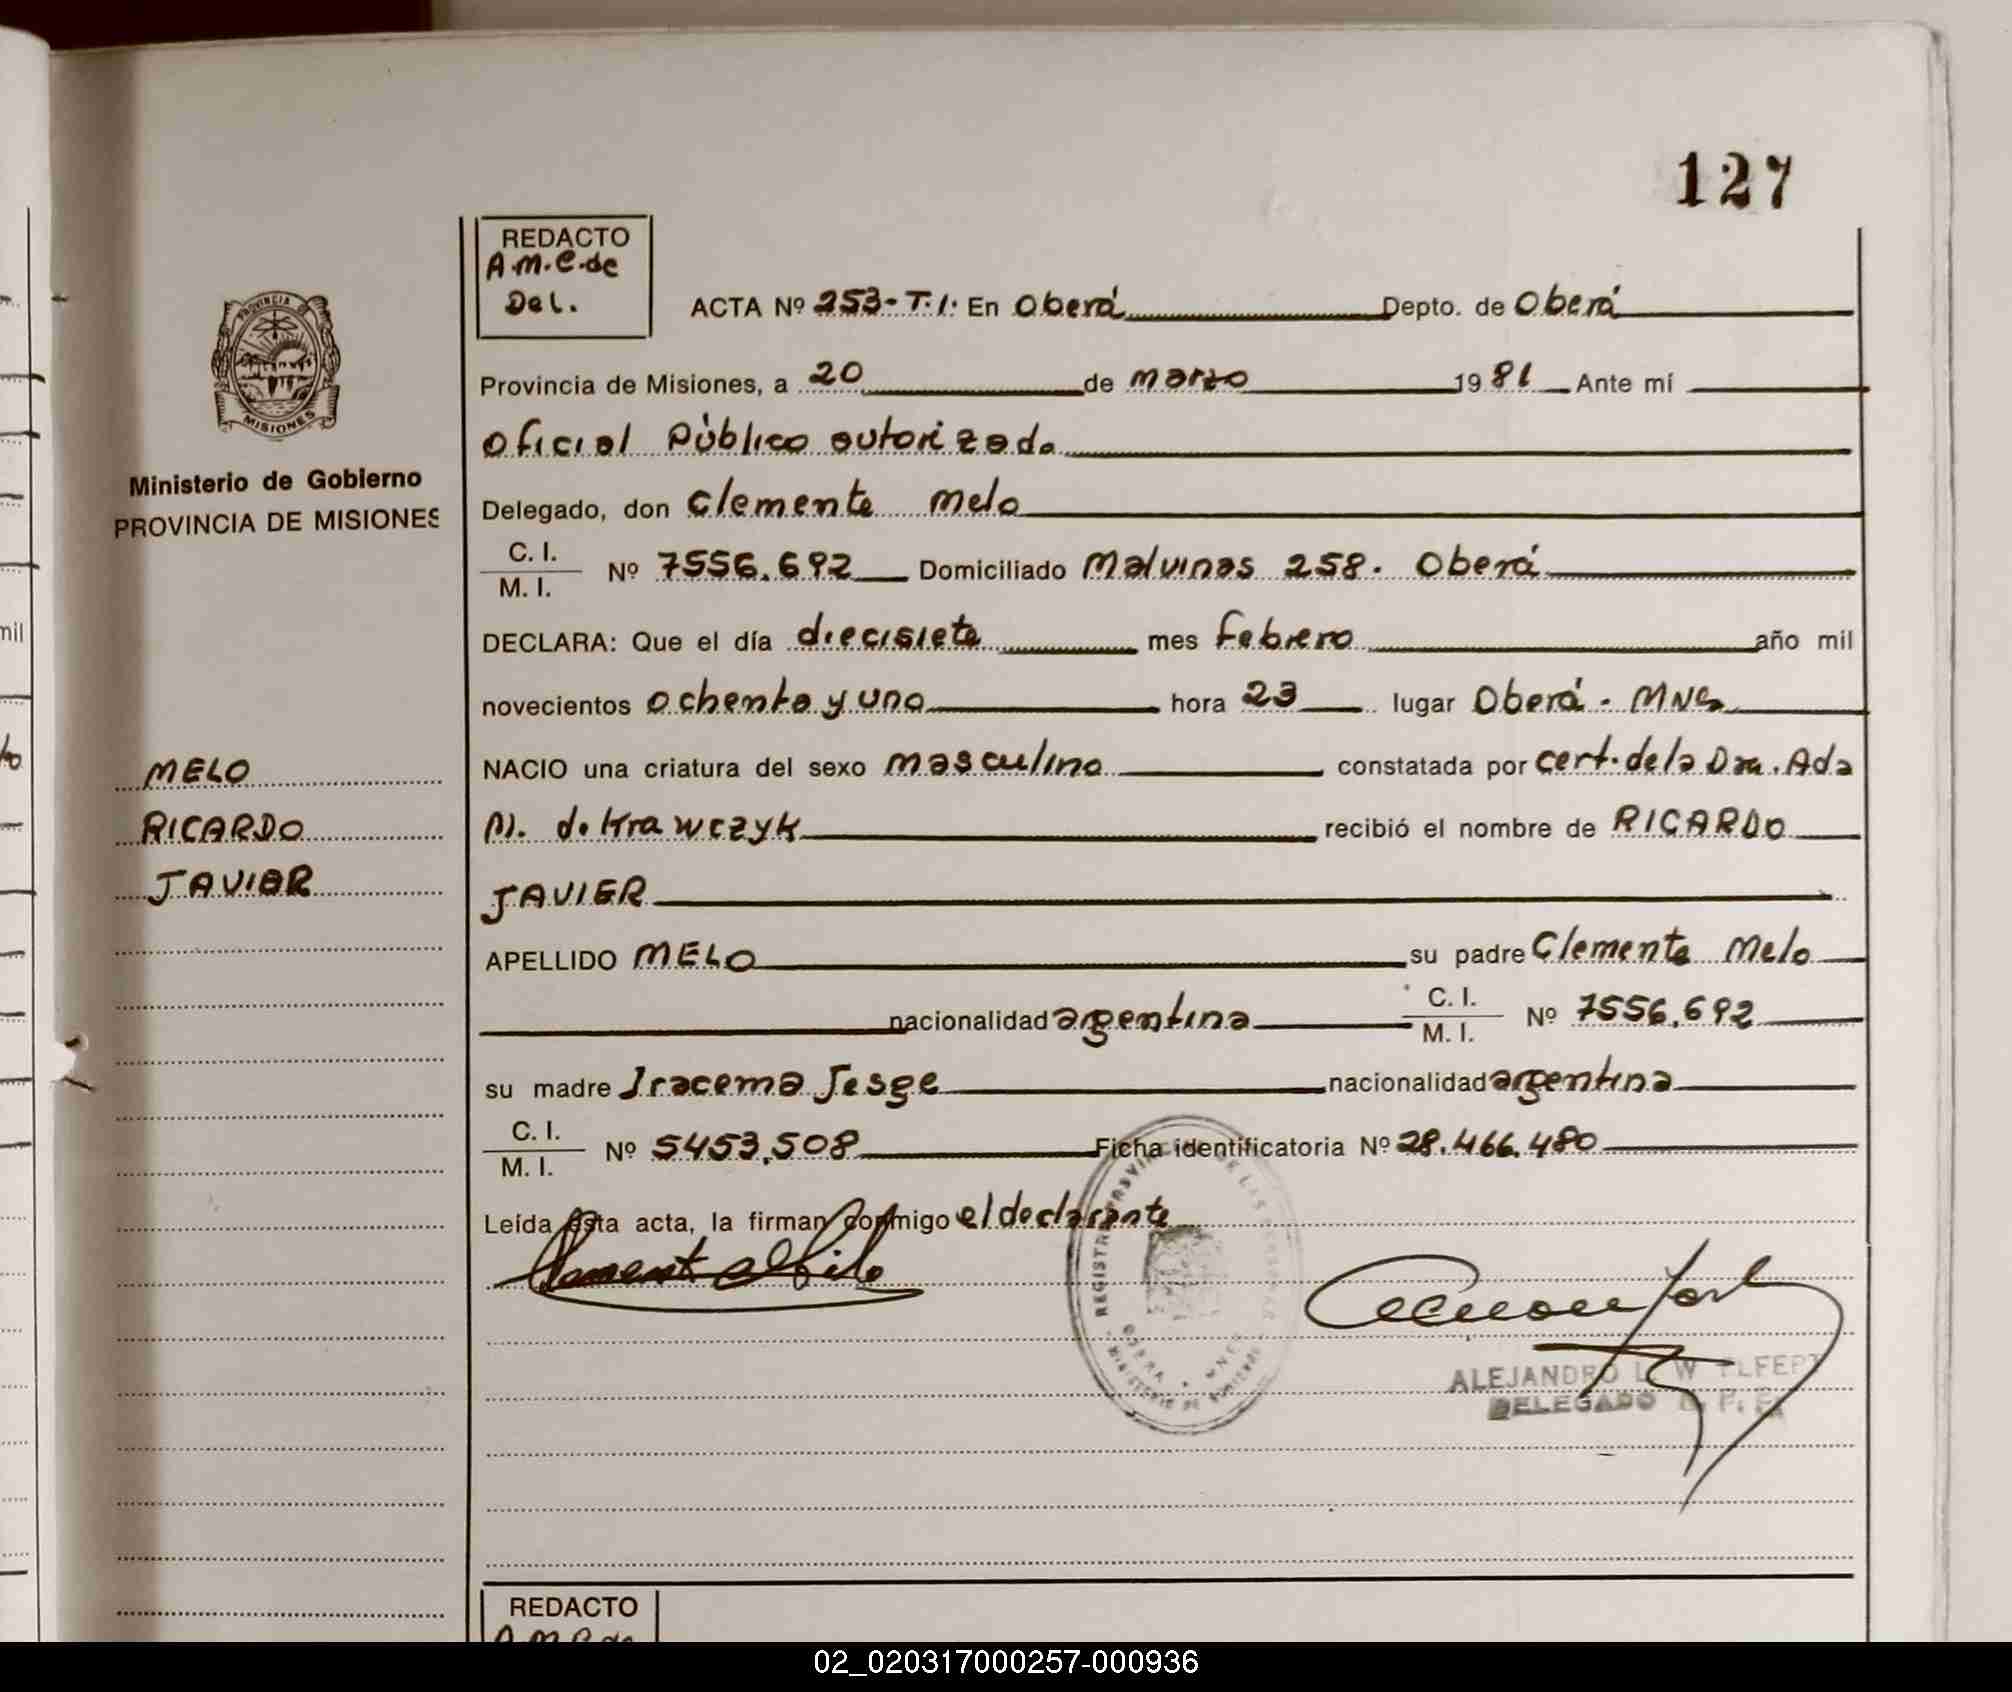 127
REDACTO
A.M.C. de
Del.
ACTA Nº 253-T.I. En Oberá Depto. de Oberá
PROVINCIA
MISIONES
Provincia de Misiones, a 20 de marzo 1981 Ante mí
Oficial Público autorizado
Ministerio de Gobierno
PROVINCIA DE MISIONES
Delegado, don Clemente Melo
C. I.
M. I. Nº 7556.692 Domiciliado Malvinas 258. Oberá
DECLARA: Que el día diecisiete mes febrero año mil
novecientos ochenta y uno hora 23 lugar Oberá. MNes
MELO
RICARDO
JAVIER
NACIO una criatura del sexo masculino constatada por cert. de la Dra. Ada
M. de Krawczyk recibió el nombre de RICARDO
JAVIER
APELLIDO MELO su padre Clemente Melo
nacionalidad argentina C. I.
M. I. Nº 7556.692
su madre Iracema Jesge nacionalidad argentina
C. I.
M. I. Nº 5453.508 Ficha identificatoria Nº 28.466.480
Leída esta acta, la firman conmigo el declarante
ALEJANDRO L. W
DELEGADO
REDACTO
A.M.C. de
mil
02_020317000257-000936